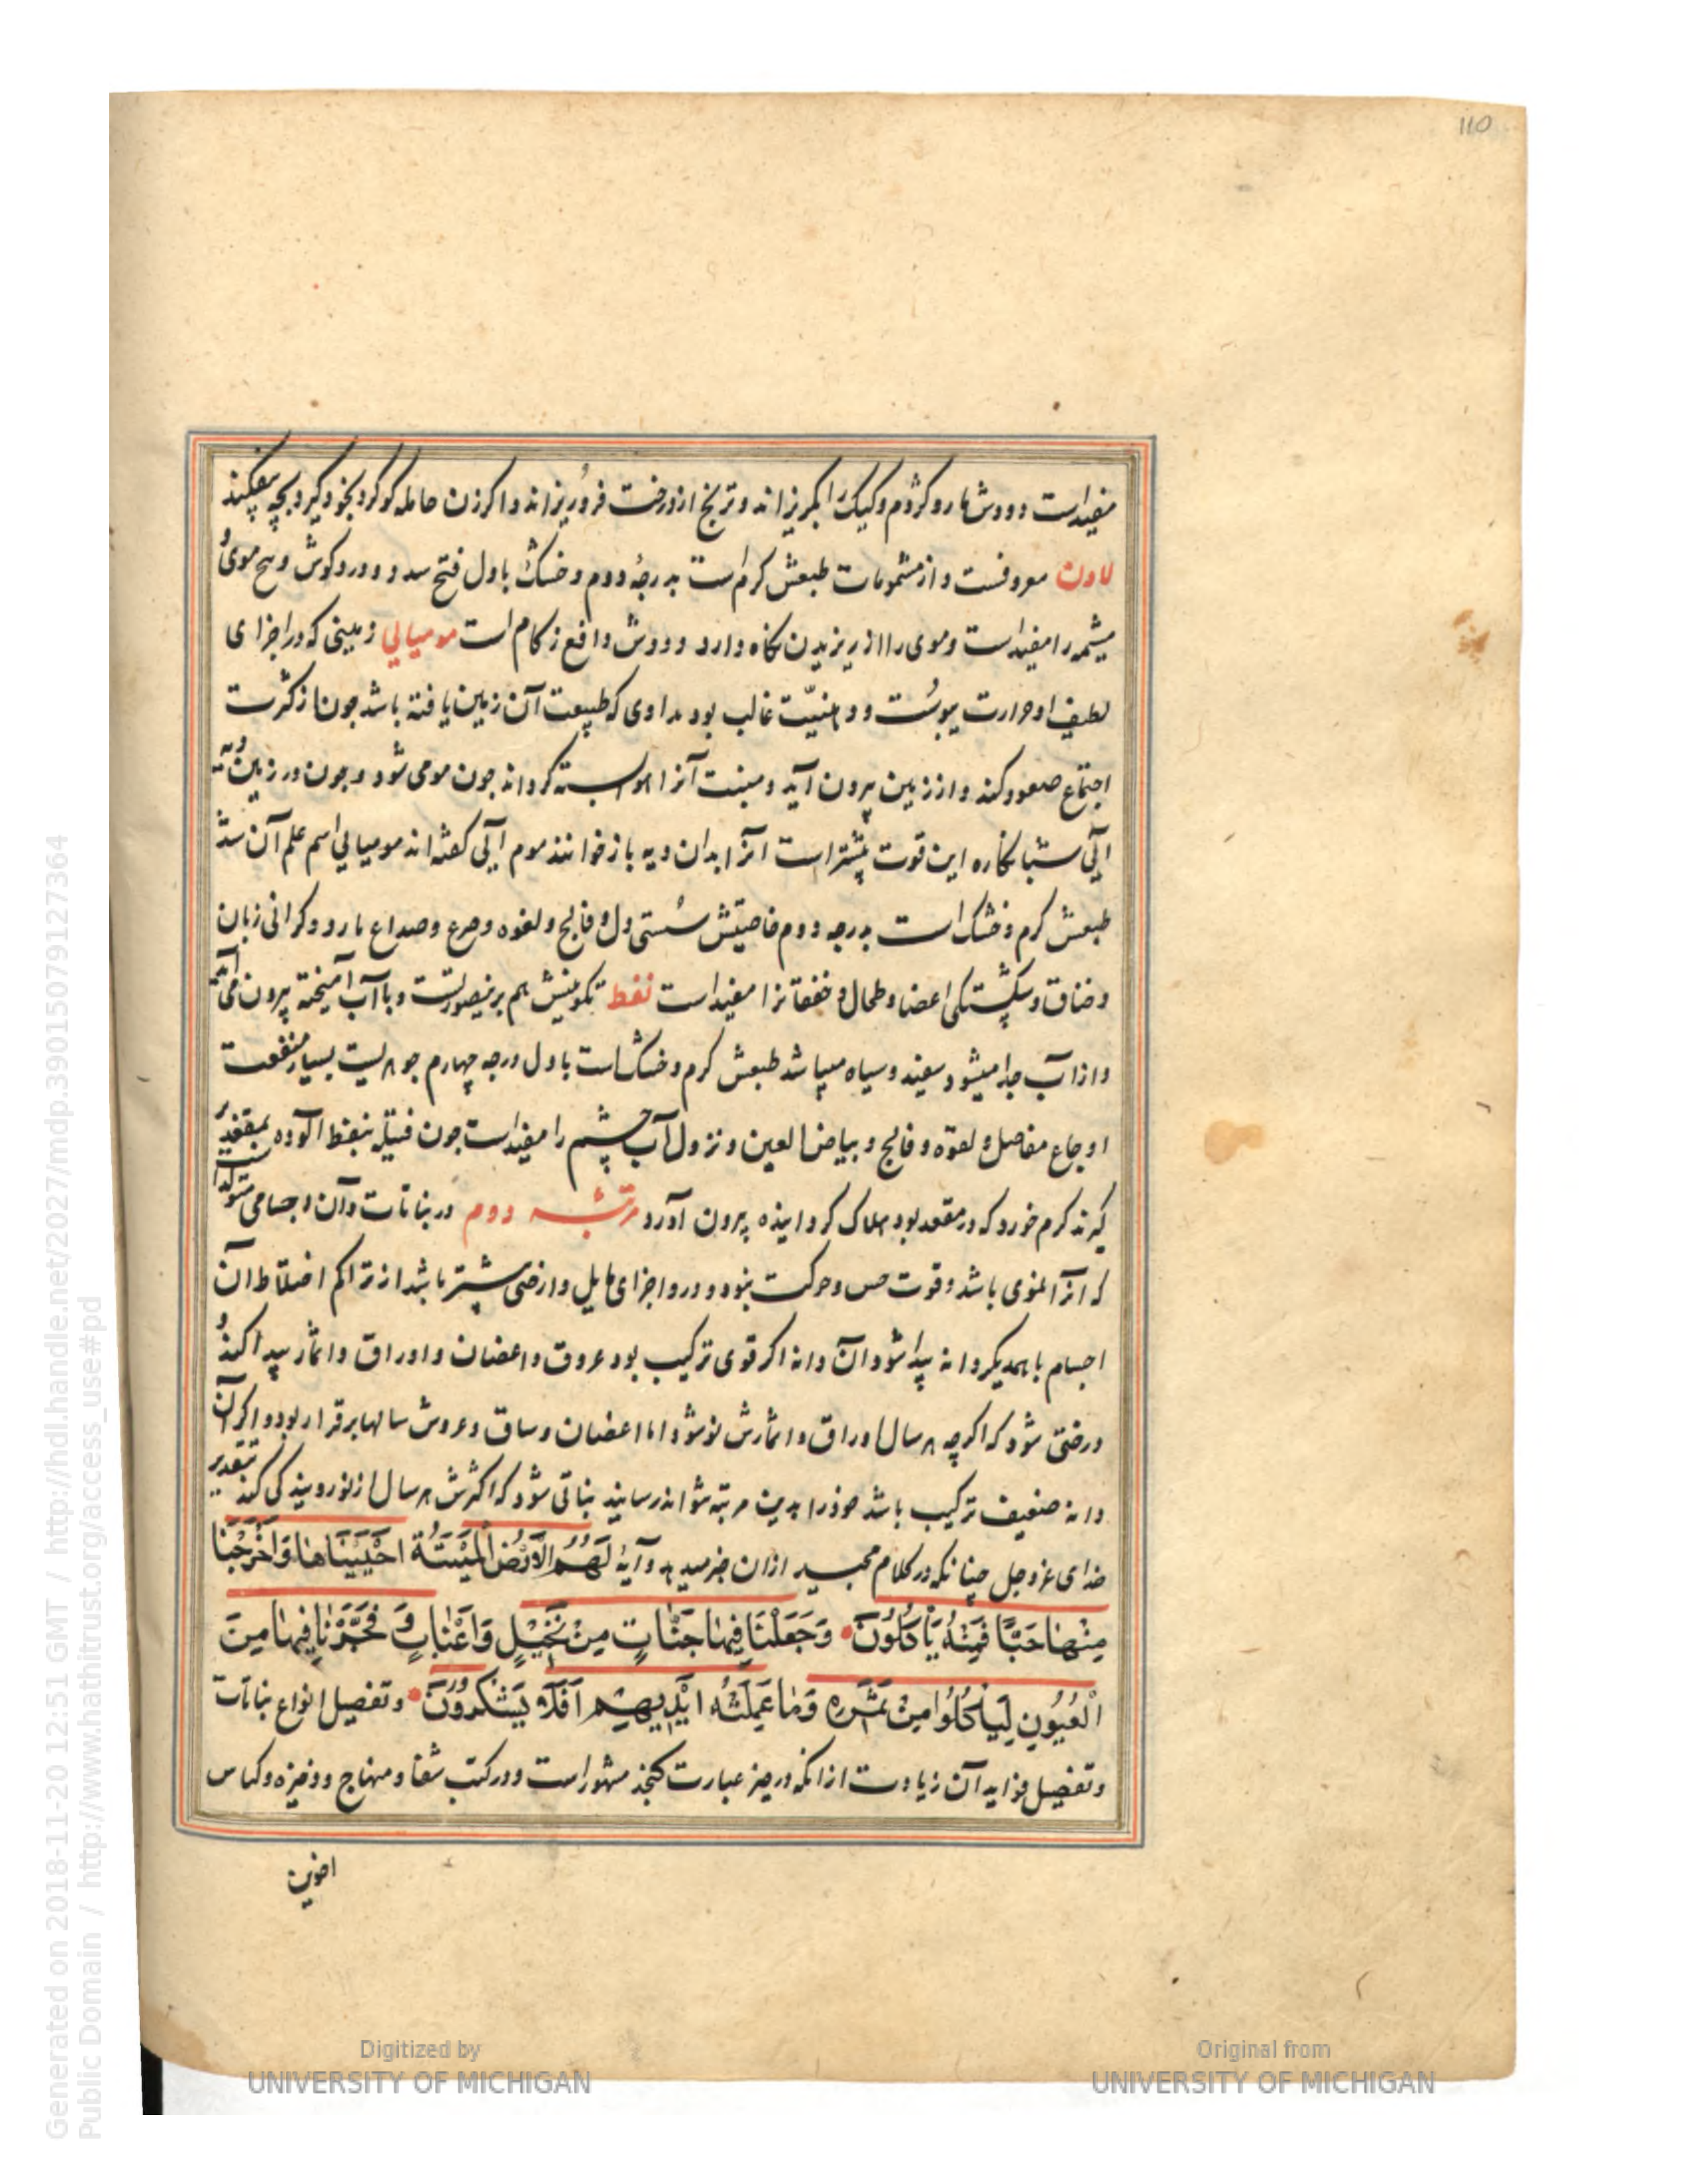 110
مفیداست و دودش مار و کژدم و کیک را بگریزاند و ترنج از درخت فروریزاند و اگر زن حامله گوگرد بخود گیرد بچه بیفکند
لادن معروفست و از مشمومات طبعش گرم است بدرجهٔ دوم و خشک باول فتح سد و درد گوش و موی
میشمه را مفیداست و موی را از ریزیدن نگاه دارد و دودش دافع زکام است مومیایی زمینی که در اجزای
لطیف او حرارت یبوست و دهنیّت غالب بود طبیعت آن زمین یافته باشد چون از کثرت
اجتماع صعود کند و از زمین بیرون آید آنرا هوا بسته گرداند چون مومی شود و چون در زمین دیه
آیی این قوت بیشتر است آنرا بدان دیه باز خوانند موم آیی گفته اند مومیایی اسم علم آن شد
طبعش گرم و خشک است بدرجه دوم خاصیتش سستی دل و فالج و لقوه و صرع و صداع بارد و گرانی زبان
و خناق و شکستگی اعضا و طحال و خفقانرا مفیداست نفط تکوینش هم برینصورتست و با آب آمیخته بیرون می آید
و از آب جدا میشود سفید و سیاه میباشد طبعش گرم و خشک است باول درجه چهارم بسیار منفعت
اوجاع مفاصل و لقوه و فالج و بیاض العین و نزول آب چشم را مفیداست چون فتیله بنفط آلوده بمقعد بر
گیرند کرم خورد که در مقعد بود هلاک گردانیده بیرون آورد مرتبه دوم در نباتات و آن اجسامی متولد است
که آنرا نموی باشد و قوت حس و حرکت نبود و درو اجزای مایل و ارضی بیشتر باشد از تراکم اختلاط آن
اجسام با همدیگر دانه پیدا شود آن دانه اگر قوی ترکیب بود عروق و اغصان و اوراق و اثمار پیدا کند و
درختی شود که اگرچه هر سال اوراق و اثمارش نو شود اما اغصان و ساق و عروش سالها برقرار بود و اگر آن
دانه ضعیف ترکیب باشد خودرا بدین مرتبه نتواند رسانید نباتی شود که اکثرش هر سال از نو رویندگی کند بتقدیر
خدای عزوجل چنانکه در کلام مجید ازان خبر میدهد وَآیَةٌ لَهُمُ الْاَرْضُ الْمَیْتَةُ اَحْیَیْنَاهَا وَاَخْرَجْنَا
مِنْهَا حَبًّا فَمِنْهُ یَأْکُلُونَ وَجَعَلْنَا فِیهَا جَنَّاتٍ مِنْ نَخِیلٍ وَاَعْنَابٍ وَفَجَّرْنَا فِیهَا مِنَ
الْعُیُونِ لِیَأْکُلُوا مِنْ ثَمَرِهِ وَمَا عَمِلَتْهُ اَیْدِیهِمْ اَفَلَا یَشْکُرُونَ و تفصیل انواع نباتات
و تفصیل فواید آن زیادت ازانکه در حیز عبارت گنجد مشهور است و در کتب شفا و منهاج و ذخیره و کناس
اخوین
Generated on 2018-11-20 12:51 GMT / http://hdl.handle.net/2027/mdp.39015079127364
Public Domain / http://www.hathitrust.org/access_use#pd
Digitized by
UNIVERSITY OF MICHIGAN
Original from
UNIVERSITY OF MICHIGAN